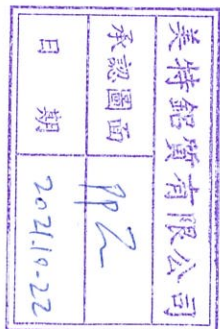 美特鋁質有限公司
承認圖面
日期 2021.10-22